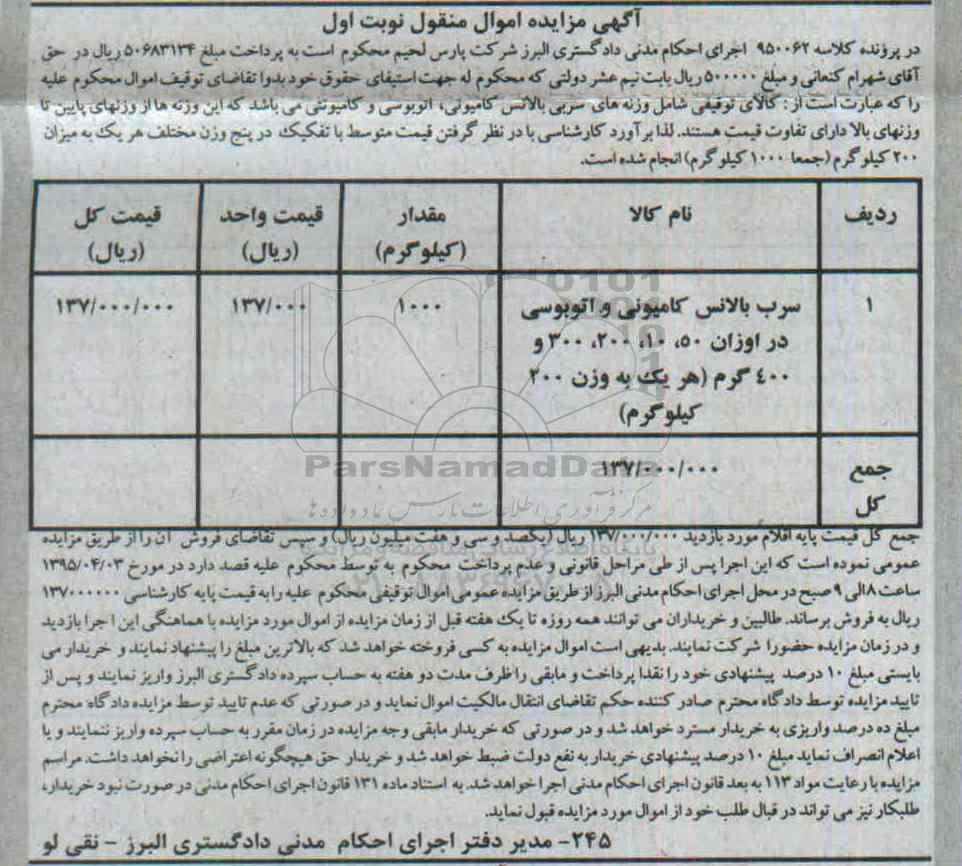 آگهی مزایده اموال منقول نوبت اول
در پرونده کلاسه ۹۵۰۰۶۲ اجرای احکام مدنی دادگستری البرز شرکت پارس لحیم محکوم است به پرداخت مبلغ ۵۰۶۸۳۱۳۴ ریال در حق
آقای شهرام کنعانی و مبلغ ۵۰۰۰۰۰ ریال بابت نیم عشر دولتی که محکوم له جهت استیفای حقوق خود بدوا تقاضای توقیف اموال محکوم علیه
را که عبارت است از: کالای توقیفی شامل وزنه های سربی بالانس کامیونی، اتوبوسی و کامیونتی می باشد که این وزنه ها از وزنهای پایین تا
وزنهای بالا دارای تفاوت قیمت هستند. لذا برآورد کارشناسی با در نظر گرفتن قیمت متوسط با تفکیک در پنج وزن مختلف هر یک به میزان
۲۰۰ کیلوگرم (جمعا ۱۰۰۰ کیلوگرم) انجام شده است.
ردیف نام کالا مقدار (کیلوگرم) قیمت واحد (ریال) قیمت کل (ریال)
۱ سرب بالانس کامیونی و اتوبوسی ۱۰۰۰ ۱۳۷/۰۰۰ ۱۳۷/۰۰۰/۰۰۰
در اوزان ۵۰، ۱۰، ۲۰۰، ۳۰۰ و
۴۰۰ گرم (هر یک به وزن ۲۰۰
کیلوگرم)
جمع کل ۱۳۷/۰۰۰/۰۰۰
ParsNamadData
مرکز فرآوری اطلاعات پارس نماد داده ها
جمع کل قیمت پایه اقلام مورد بازدید ۱۳۷/۰۰۰/۰۰۰ ریال (یکصد و سی و هفت میلیون ریال) و سپس تقاضای فروش آن را از طریق مزایده
عمومی نموده است که این اجرا پس از طی مراحل قانونی و عدم پرداخت محکوم به توسط محکوم علیه قصد دارد در مورخ ۱۳۹۵/۰۴/۰۳
ساعت ۸ الی ۹ صبح در محل اجرای احکام مدنی البرز از طریق مزایده عمومی اموال توقیفی محکوم علیه را به قیمت پایه کارشناسی ۱۳۷۰۰۰۰۰۰
ریال به فروش برساند. طالبین و خریداران می توانند همه روزه تا یک هفته قبل از زمان مزایده از اموال مورد مزایده با هماهنگی این اجرا بازدید
و در زمان مزایده حضورا شرکت نمایند. بدیهی است اموال مزایده به کسی فروخته خواهد شد که بالاترین مبلغ را پیشنهاد نمایند و خریدار می
بایستی مبلغ ۱۰ درصد پیشنهادی خود را نقدا پرداخت و مابقی را ظرف مدت دو هفته به حساب سپرده دادگستری البرز واریز نمایند و پس از
تایید مزایده توسط دادگاه محترم صادر کننده حکم تقاضای انتقال مالکیت اموال نماید و در صورتی که عدم تایید توسط مزایده دادگاه محترم
مبلغ ده درصد واریزی به خریدار مسترد خواهد شد و در صورتی که خریدار مابقی وجه مزایده در زمان مقرر به حساب سپرده واریز ننمایند و یا
اعلام انصراف نماید مبلغ ۱۰ درصد پیشنهادی خریدار به نفع دولت ضبط خواهد شد و خریدار حق هیچگونه اعتراضی را نخواهد داشت. مراسم
مزایده با رعایت مواد ۱۱۳ به بعد قانون اجرای احکام مدنی اجرا خواهد شد. به استناد ماده ۱۳۱ قانون اجرای احکام مدنی در صورت نبود خریدار،
طلبکار نیز می تواند در قبال طلب خود از اموال مورد مزایده قبول نماید.
۲۴۵- مدیر دفتر اجرای احکام مدنی دادگستری البرز - نقی لو